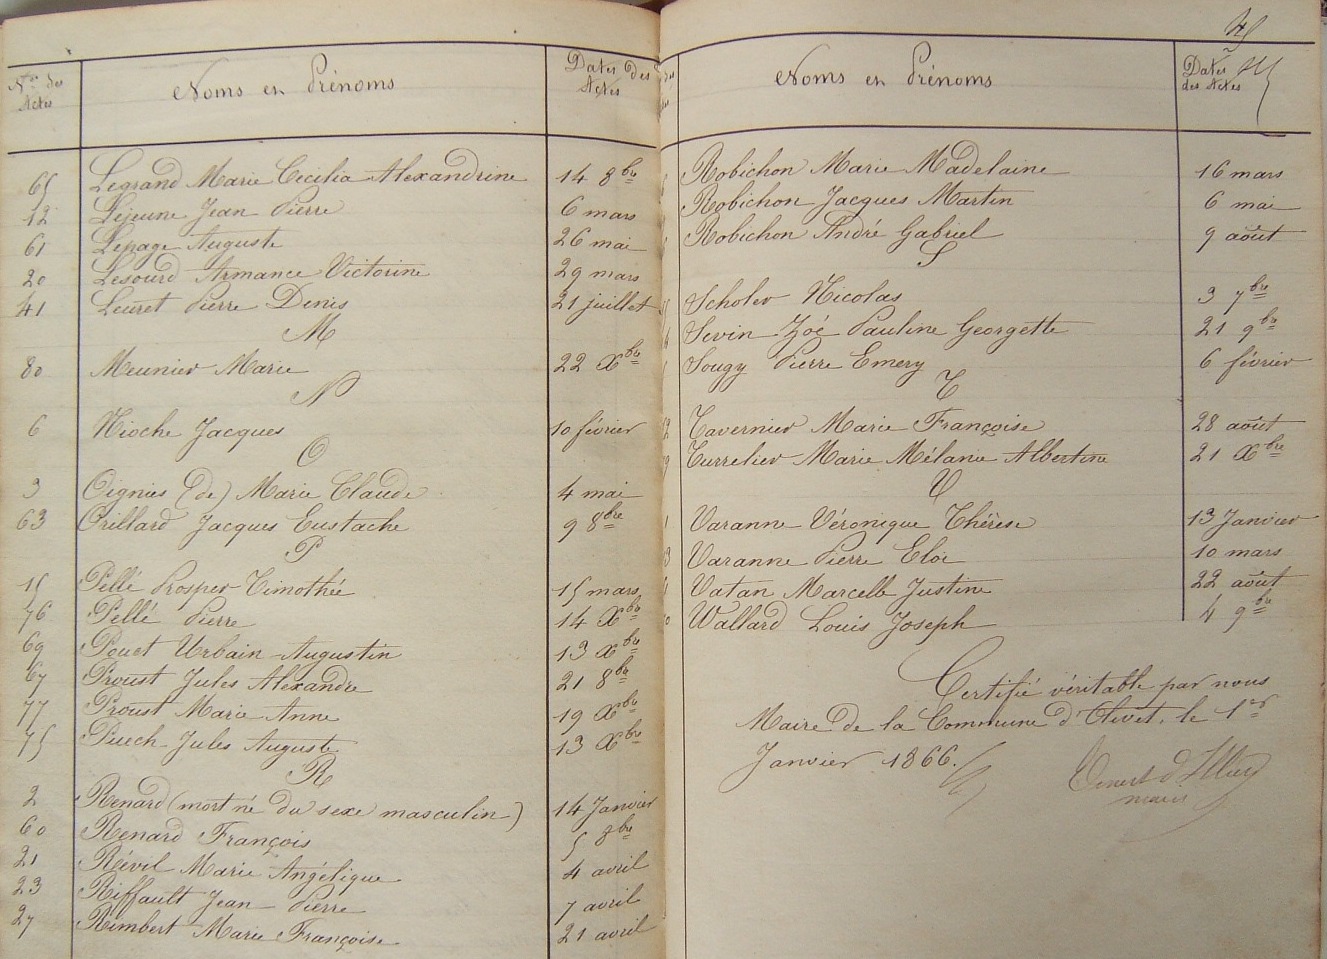 Nos des Actes
Noms et Prénoms
Dates des Actes
65 Legrand Marie Cecilia Alexandrine 14 8bre
12 Lejeune Jean Pierre 6 mars
61 Lepage Auguste 26 mai
20 Lesourd Armance Victorine 29 mars
41 Leuret Pierre Denis 21 juillet
M
80 Meunier Marie 22 Xbre
N
6 Nioche Jacques 10 février
O
3 Oignies (de) Marie Claude 4 mai
63 Orillard Jacques Eustache 9 8bre
P
15 Pellé Prosper Timothée 15 mars
76 Pellé Pierre 14 Xbre
69 Pouet Urbain Augustin 13 Xbre
67 Proust Jules Alexandre 21 8bre
77 Proust Marie Anne 19 Xbre
75 Puech Jules Auguste 13 Xbre
R
2 Renard (mort né du sexe masculin) 14 Janvier
60 Renard François 5 8bre
21 Révil Marie Angélique 4 avril
23 Riffault Jean Pierre 7 avril
27 Rimbert Marie Françoise 21 avril
Noms et Prénoms
Dates des Actes
Robichon Marie Madelaine 16 mars
Robichon Jacques Martin 6 mai
Robichon André Gabriel 9 août
S
Scholer Nicolas 3 7bre
Sevin Zoé Pauline Georgette 21 9bre
Sougy Pierre Emery 6 février
T
Tavernier Marie Françoise 28 août
Turrelier Marie Mélanie Albertine 21 Xbre
V
Varanne Véronique Thérèse 13 Janvier
Varanne Pierre Eloi 10 mars
Vatan Marcelle Justine 22 août
Wallard Louis Joseph 4 9bre
Certifié véritable par nous
Maire de la Commune d'Olivet, le 1er
Janvier 1866.
maire